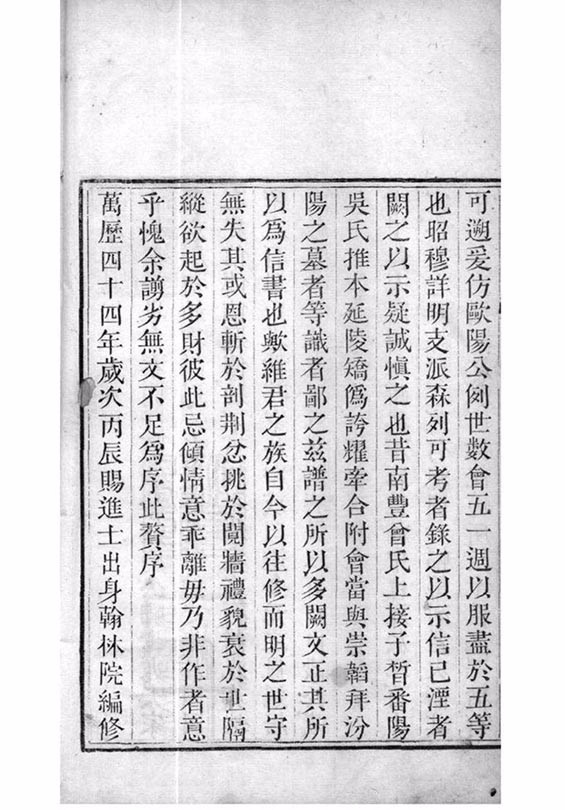 可遡爰仿歐陽公例世數會五一週以服盡於五等
也昭穆詳明支派森列可考者錄之以示信已湮者
闕之以示疑誠慎之也昔南豐曾氏上接子晳番陽
吳氏推本延陵矯僞誇耀牽合附會當與崇韜拜汾
陽之墓者等識者鄙之茲譜之所以多闕文正其所
以爲信書也歟維君之族自今以往修而明之世守
無失其或恩斬於剖荆忿挑於鬩牆禮貌衰於世隔
縱欲起於多財彼此忌傾情意乖離毋乃非作者意
乎愧余謭劣無文不足爲序此贅序
萬歷四十四年歲次丙辰賜進士出身翰林院編修